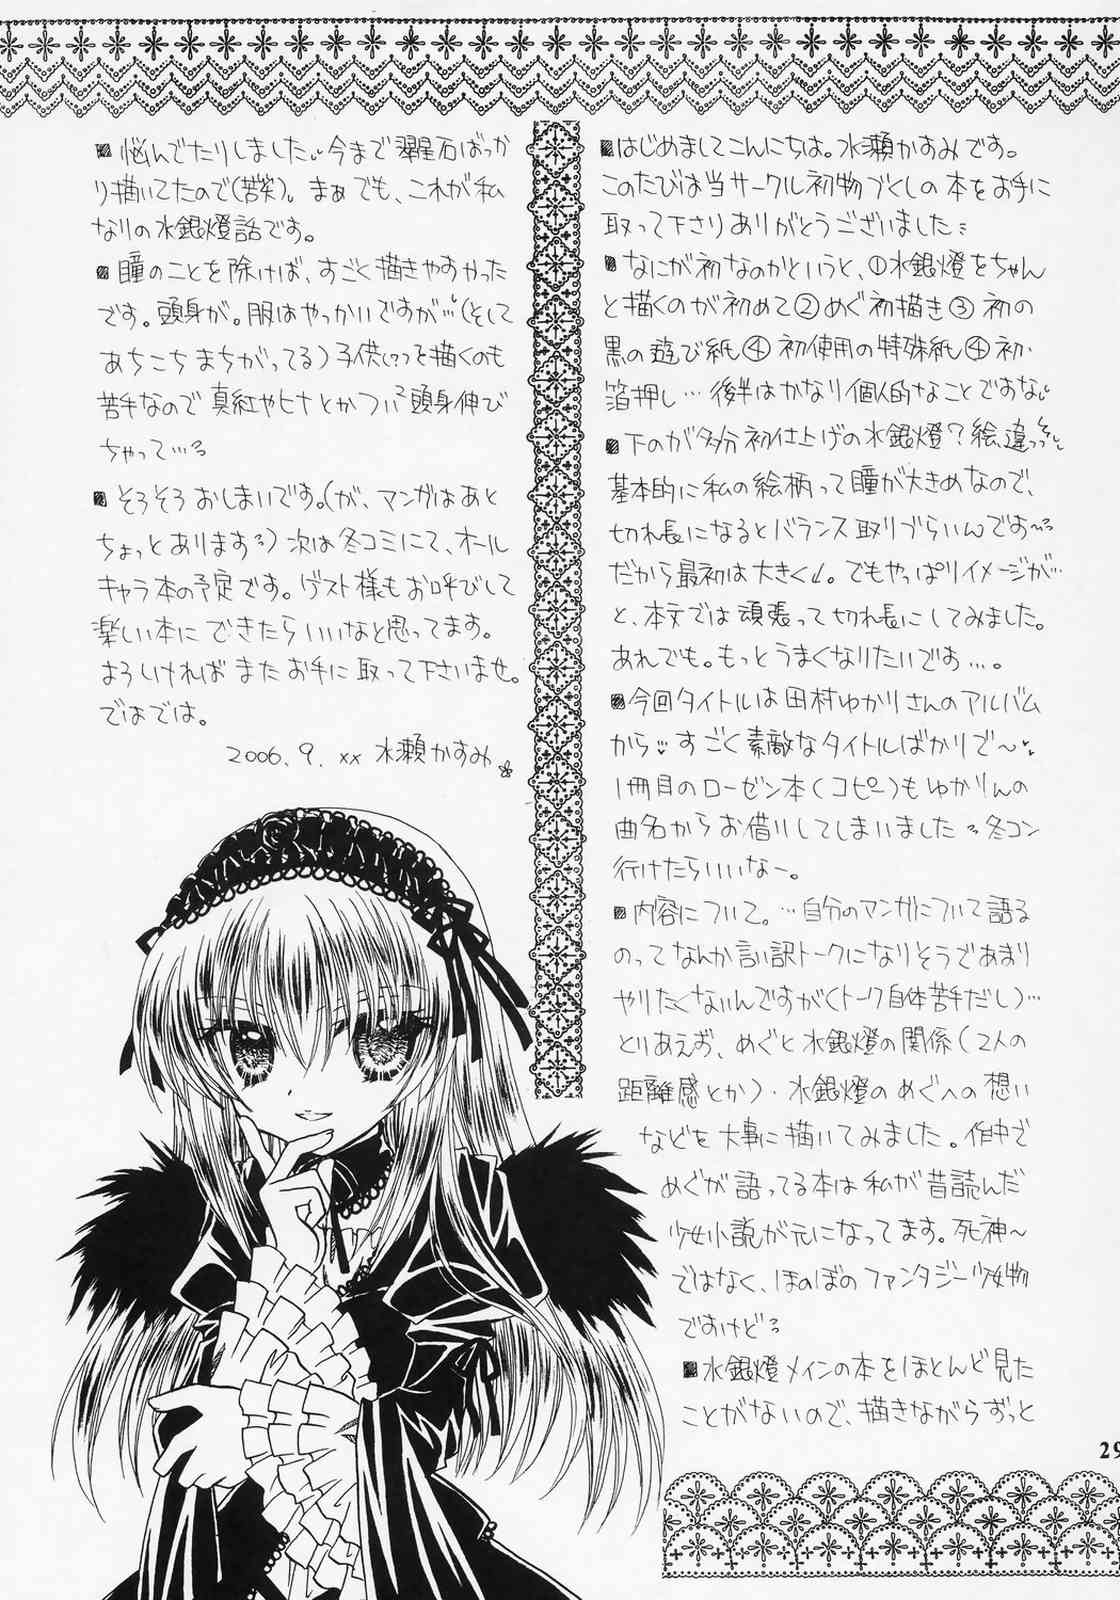 ■はじめましてこんにちは。水瀬かすみです。
このたびは当サークル初物づくしの本をお手に
取って下さりありがとうございました
■なにが初なのかというと、①水銀燈をちゃん
と描くのが初めて②めぐ初描き③初の
黒の遊び紙④初使用の特殊紙④初・
箔押し…後半はかなり個人的なことですな
■下のが多分初仕上げの水銀燈?絵、違っ
基本的に私の絵柄って瞳が大きめなので、
切れ長になるとバランス取りづらいんです〜
だから最初は大きく。でもやっぱりイメージが…
と、本文では頑張って切れ長にしてみました。
あれでも。もっとうまくなりたいです…。
■今回タイトルは田村ゆかりさんのアルバム
から すごく素敵なタイトルばかりで〜
1冊目のローゼン本(コピー)もゆかりんの
曲名からお借りしてしまいました 冬コン
行けたらいいなー。
■内容について。…自分のマンガについて語る
のってなんか言い訳トークになりそうであまり
やりたくないんですが(トーク自体苦手だし)…
とりあえず、めぐと水銀燈の関係(2人の
距離感とか)・水銀燈のめぐへの想い
などを大事に描いてみました。作中で
めぐが語ってる本は私が昔読んだ
少女小説が元になってます。死神〜
ではなく、ほのぼのファンタジー少女物
ですけど
■水銀燈メインの本をほとんど見た
ことがないので、描きながらずっと
■悩んでたりしました 今まで翠星石ばっか
り描いてたので(苦笑)。まぁでも、これが私
なりの水銀燈話です。
■瞳のことを除けば、すごく描きやすかった
です。頭身が。服はやっかいですが…(そして
あちこちまちがってる)子供(?)を描くのも
苦手なので真紅やヒナとかつい頭身伸び
ちゃって…
■そろそろおしまいです。(が、マンガはあと
ちょっとあります)次は冬コミにて、オール
キャラ本の予定です。ゲスト様もお呼びして
楽しい本にできたらいいなと思ってます。
よろしければまたお手に取って下さいませ。
ではでは。
2006.9.xx 水瀬かすみ
29